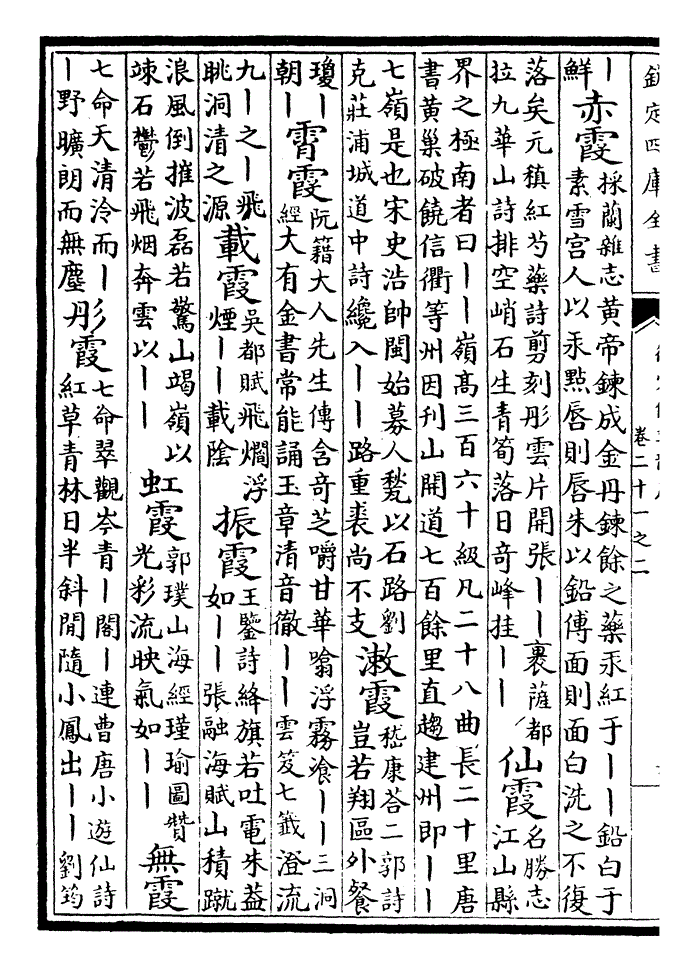 欽定四庫全書
卷二十一之二
｜
鮮
赤霞
採蘭雜志黄帝鍊成金丹鍊餘之藥汞紅于｜｜鉛白于
素雪宫人以汞㸃唇則唇朱以鉛傅面則面白洗之不復
落矣元稹紅芍藥詩剪刻彤雲片開張｜｜裏薩都
拉九華山詩排空峭石生青筍落日奇峰挂｜｜
仙霞
名勝志
江山縣
界之極南者曰｜｜嶺髙三百六十級凡二十八曲長二十里唐
書黄巢破饒信衢等州因刋山開道七百餘里直趨建州即｜｜
七嶺是也宋史浩帥閩始募人甃以石路劉
克莊浦城道中詩纔入｜｜路重裘尚不支
漱霞
嵇康荅二郭詩
豈若翔區外餐
瓊｜
朝｜
霄霞
阮籍大人先生傳含奇芝嚼甘華噏浮霧飡｜｜三洞
經大有金書常能誦玉章清音徹｜｜雲笈七籤澄流
九｜之｜飛
眺洞清之源
載霞
吳都賦飛爓浮
煙｜｜載陰
振霞
王鑒詩絳旗若吐電朱葢
如｜｜張融海賦山積蹴
浪風倒摧波磊若驚山竭嶺以
竦石鬱若飛烟奔雲以｜｜
虹霞
郭璞山海經瑾瑜圖贊
光彩流映氣如｜｜
無霞
七命天清泠而｜
｜野曠朗而無塵
彤霞
七命翠觀岑青｜閣｜連曹唐小遊仙詩
紅草青林日半斜閒隨小鳳出｜｜劉筠